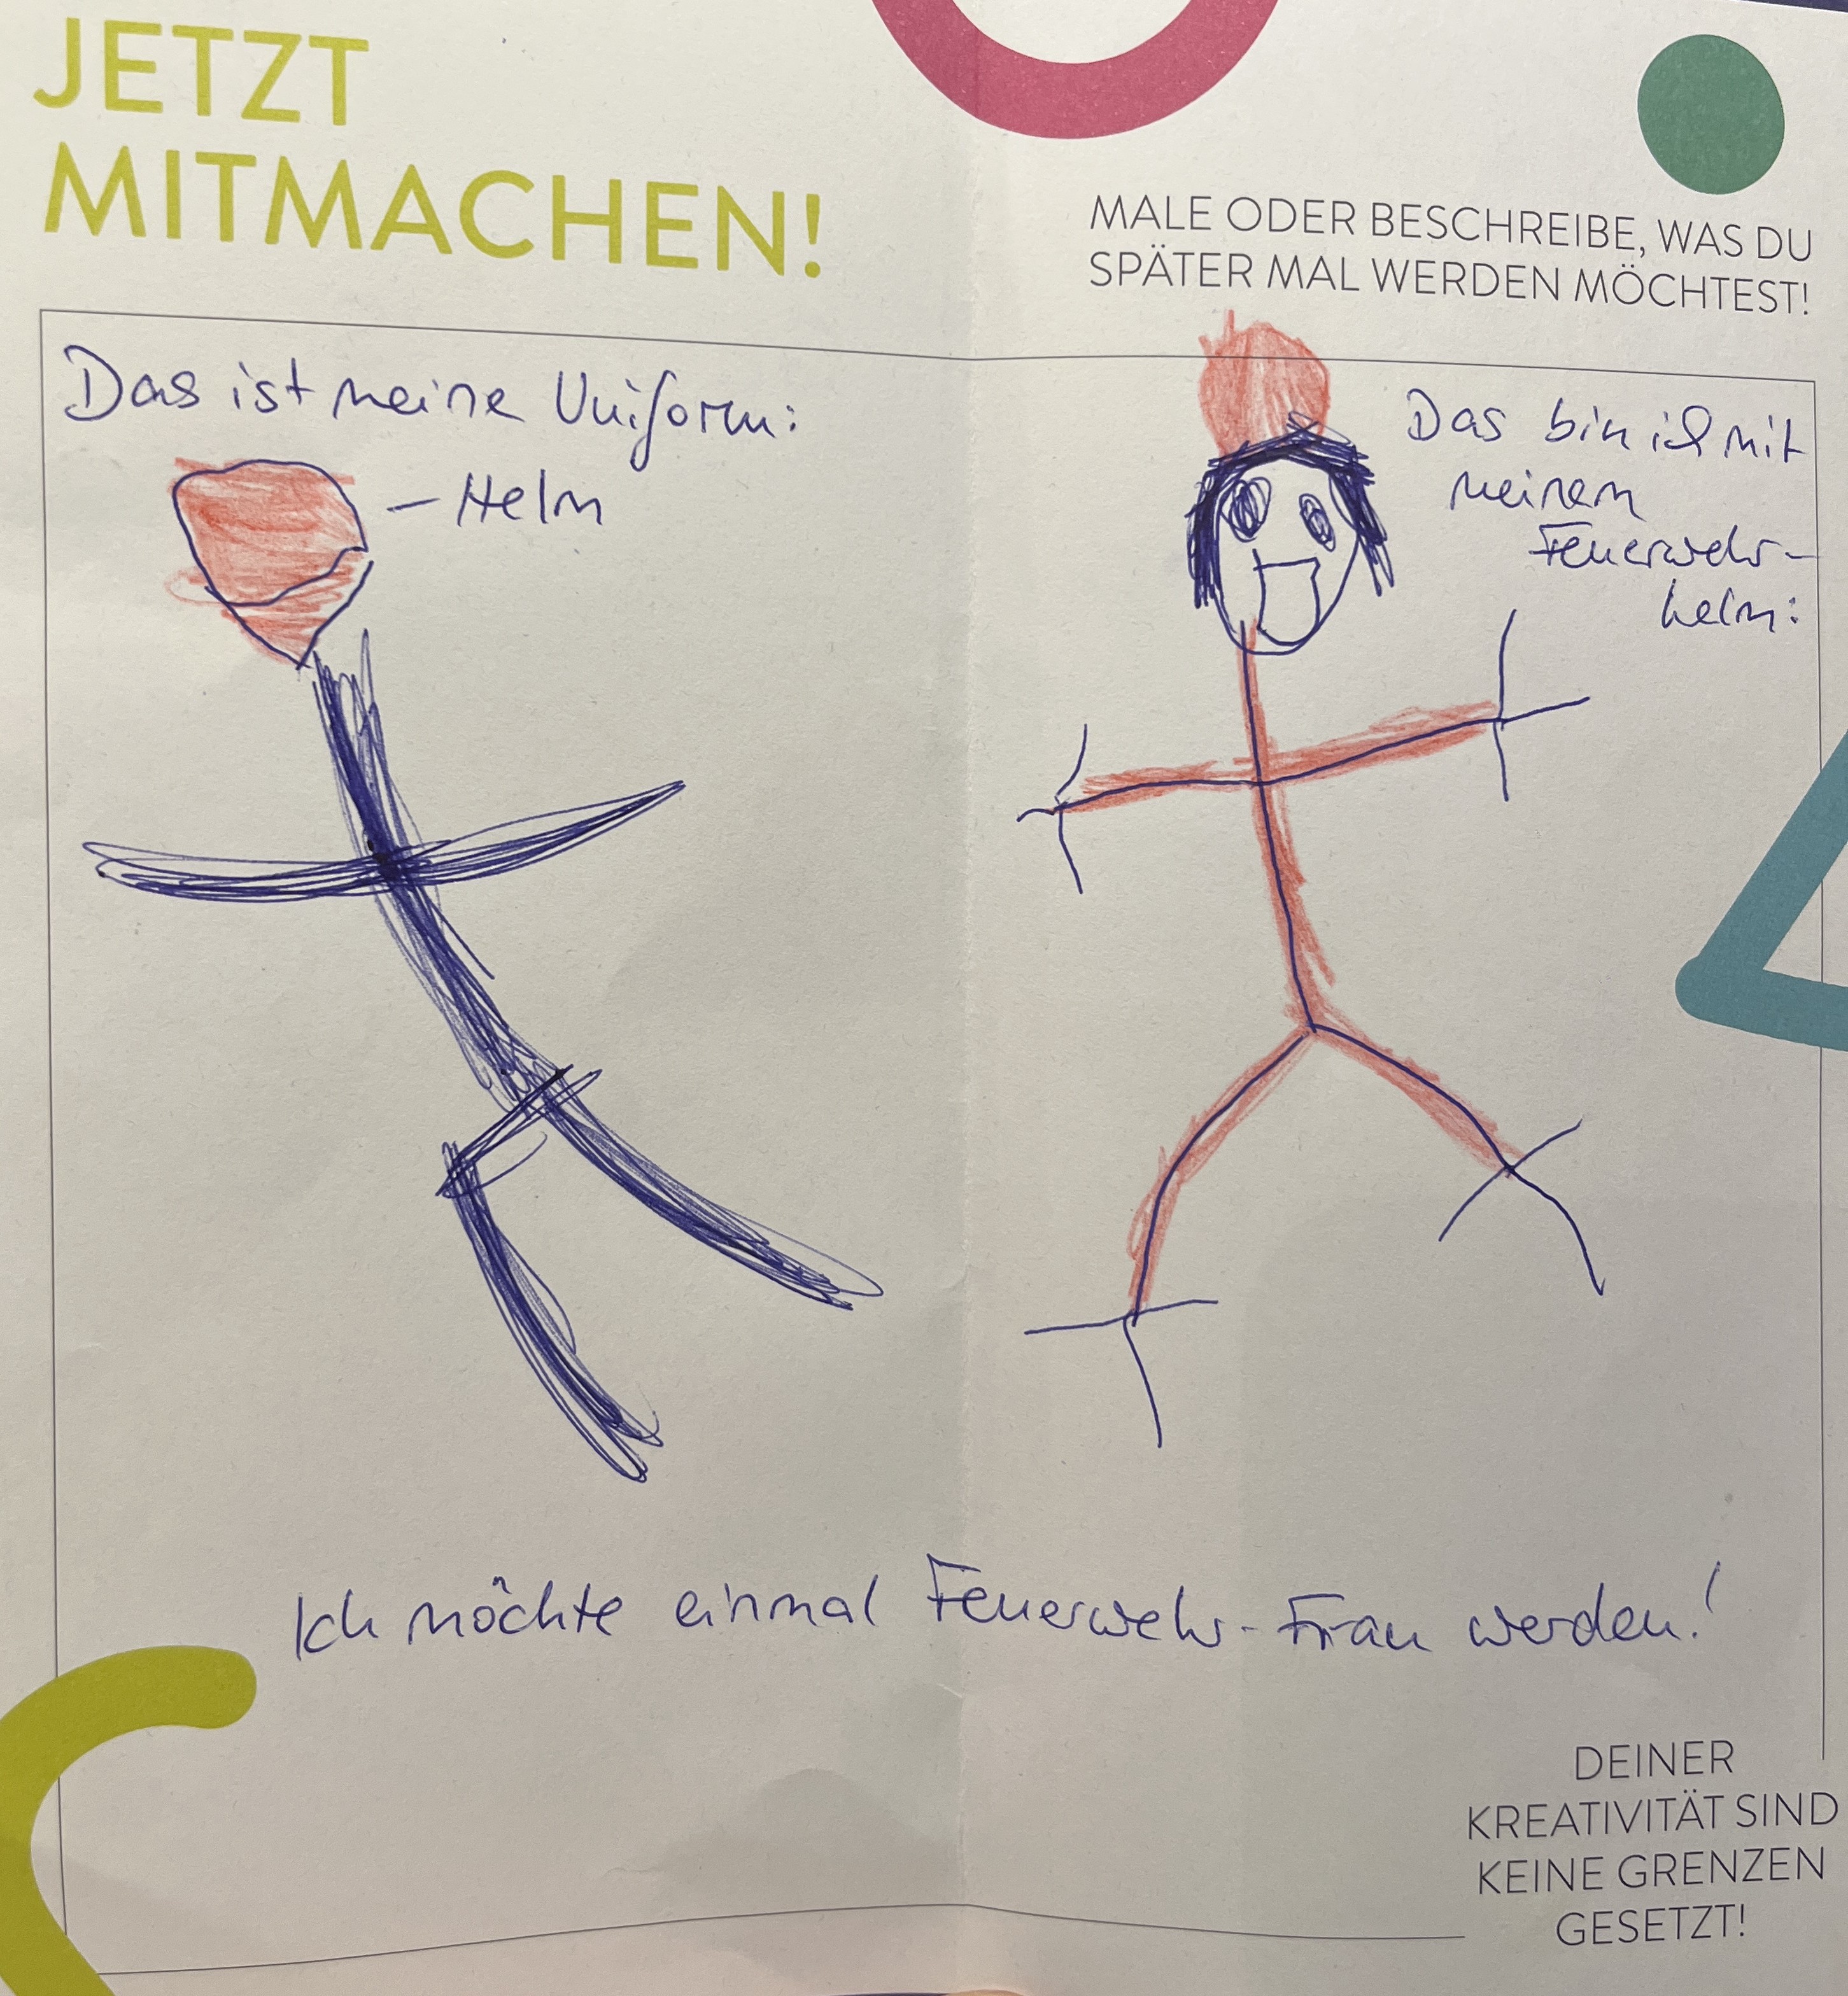 JETZT
MITMACHEN!
MALE ODER BESCHREIBE, WAS DU
SPÄTER MAL WERDEN MÖCHTEST!
Das ist meine Uniform:
- Helm
Das bin ich mit
meinem
Feuerwehr-
helm:
Ich möchte einmal Feuerwehr-Frau werden!
DEINER
KREATIVITÄT SIND
KEINE GRENZEN
GESETZT!